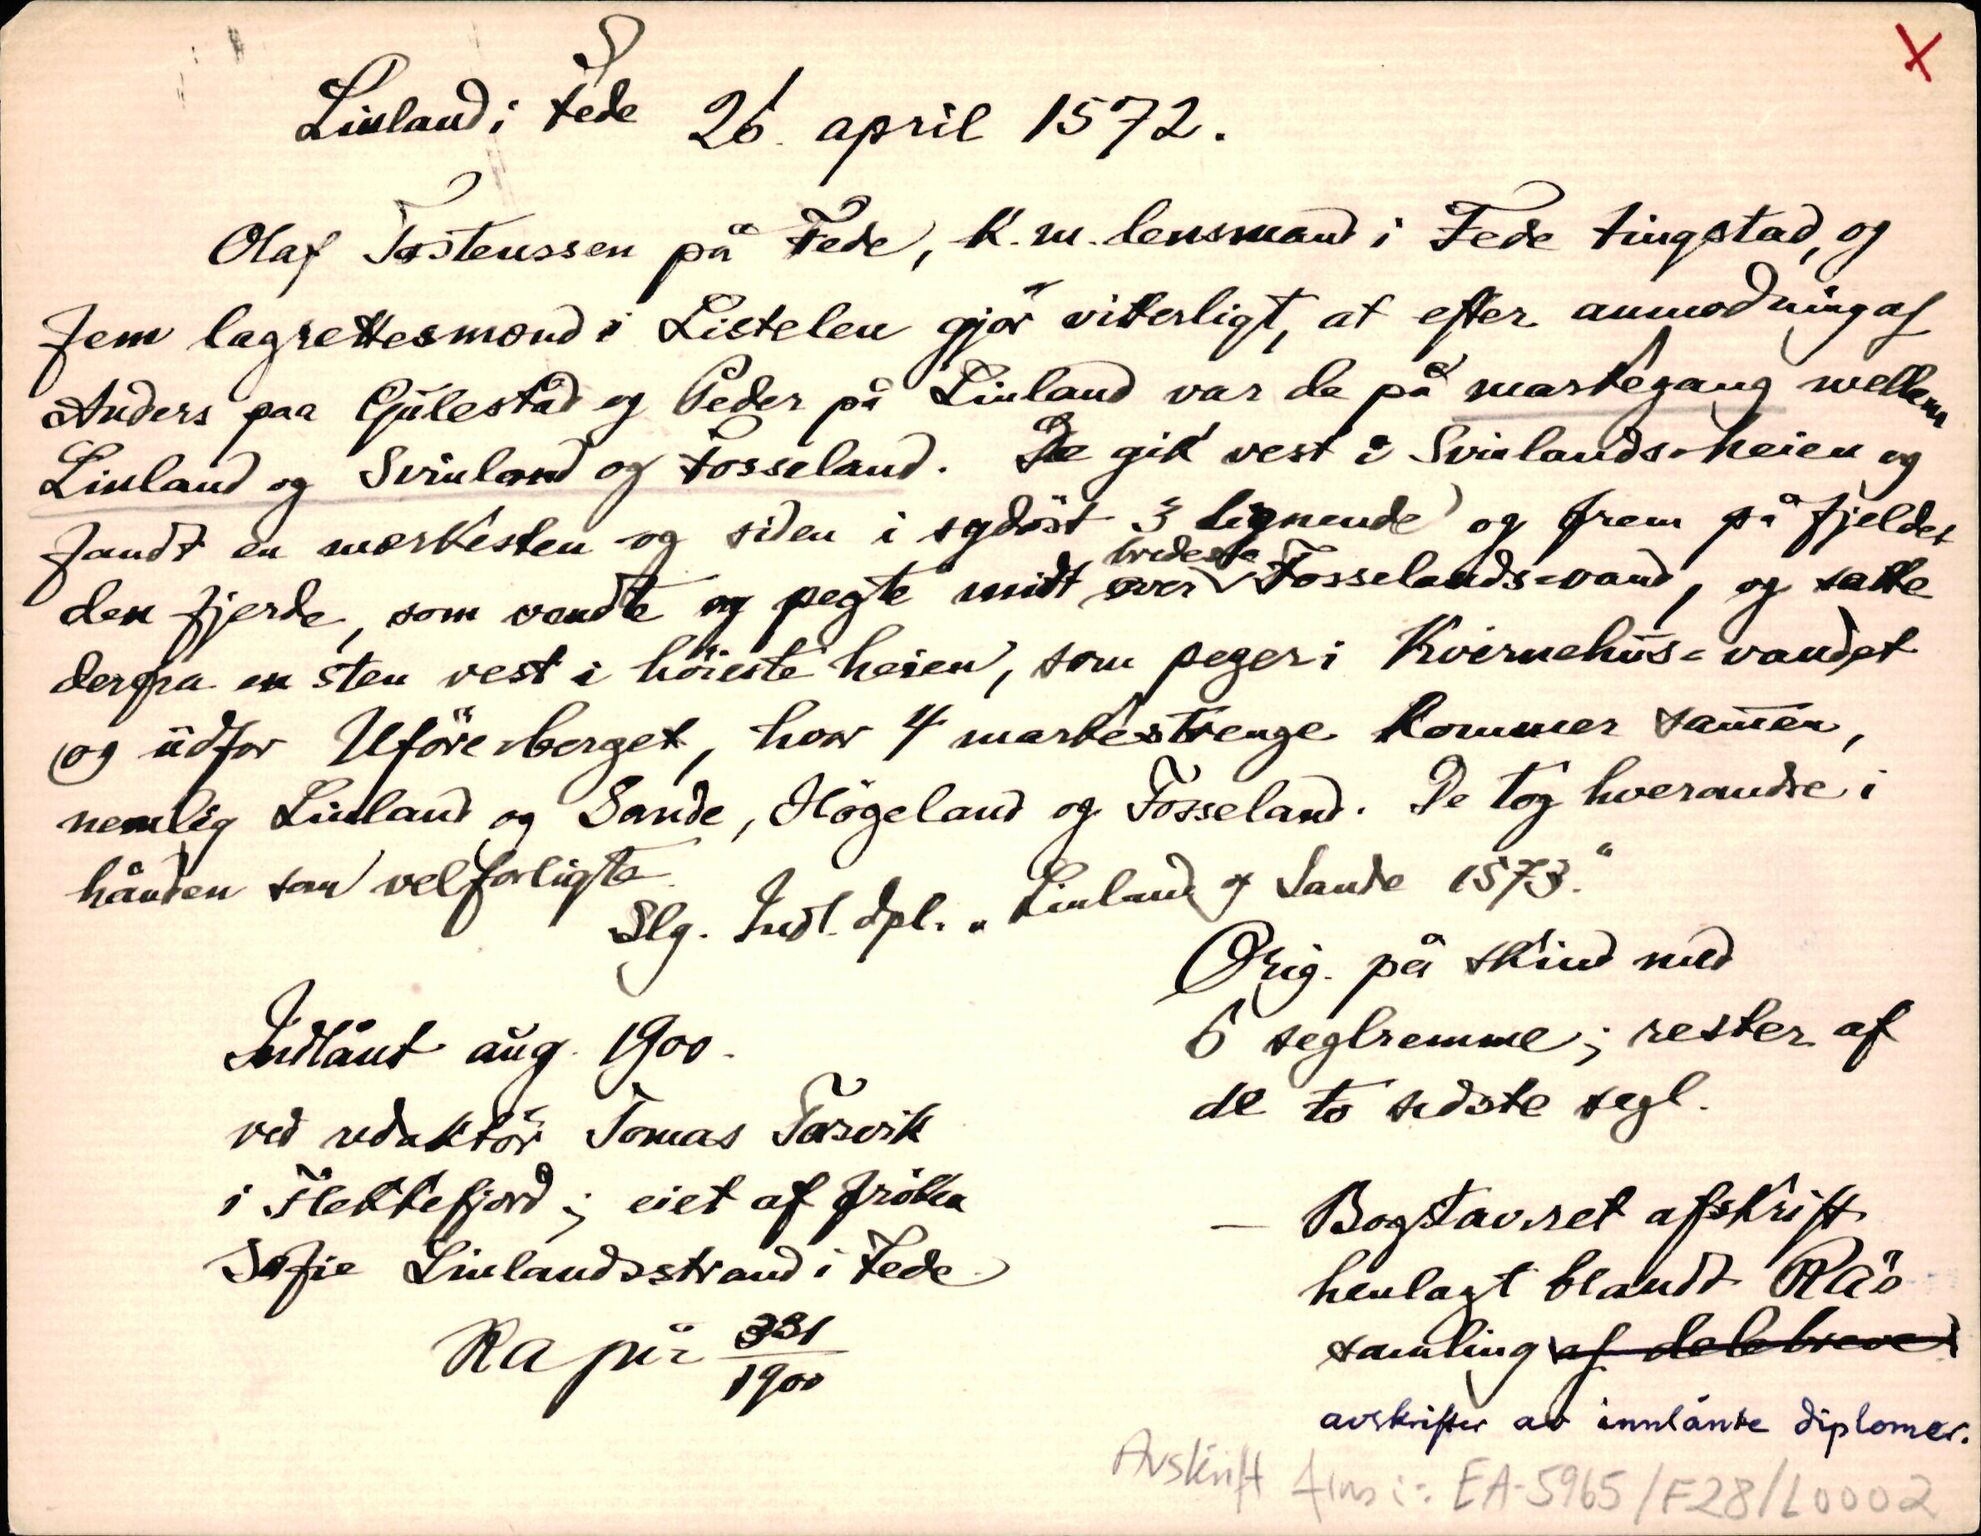 X
Linland i Fede 26. april 1572.
Olaf Tostenssen på Fede, k. m. lensmand i Fede tingstad, og
fem lagrettesmænd i Listelen gjør vitterligt, at efter anmodning af
Anders paa Gulestad og Peder på Linland var de på markegang mellem
Linland og Svinland og Fosseland. De gik vest i Svinlands-heien og
fandt en merkesten og siden i sydöst 3 lignende og frem på fjeldet
den fjerde, som vendte og pegte midt over bredeste Fosselands-vand, og satte
derfra en sten vest i höieste heien, som peger i Kvernehus-vandet
og udfor Uföreberget, hvor 4 markestrenge kommer sammen,
nemlig Linland og Sande, Högeland og Fosseland. De tog hverandre i
hånden som vel forligte.
Slg. Indl. dpl. „Linland og Sande 1573."
Orig. på skind med
6 seglremme; rester af
de to sidste segl.
Indlånt aug. 1900.
ved redaktör Tomas Torsvik
i Flekkefjord; eiet af frøken
Sofie Linlandsstrand i Fede
RA jnr 331/1900
— Bogstavret afskrift
henlagt blandt RA's
samling af delebreve
avskrifter av innlånte diplomer.
Avskrift fins i: EA-5965/F28/L0002